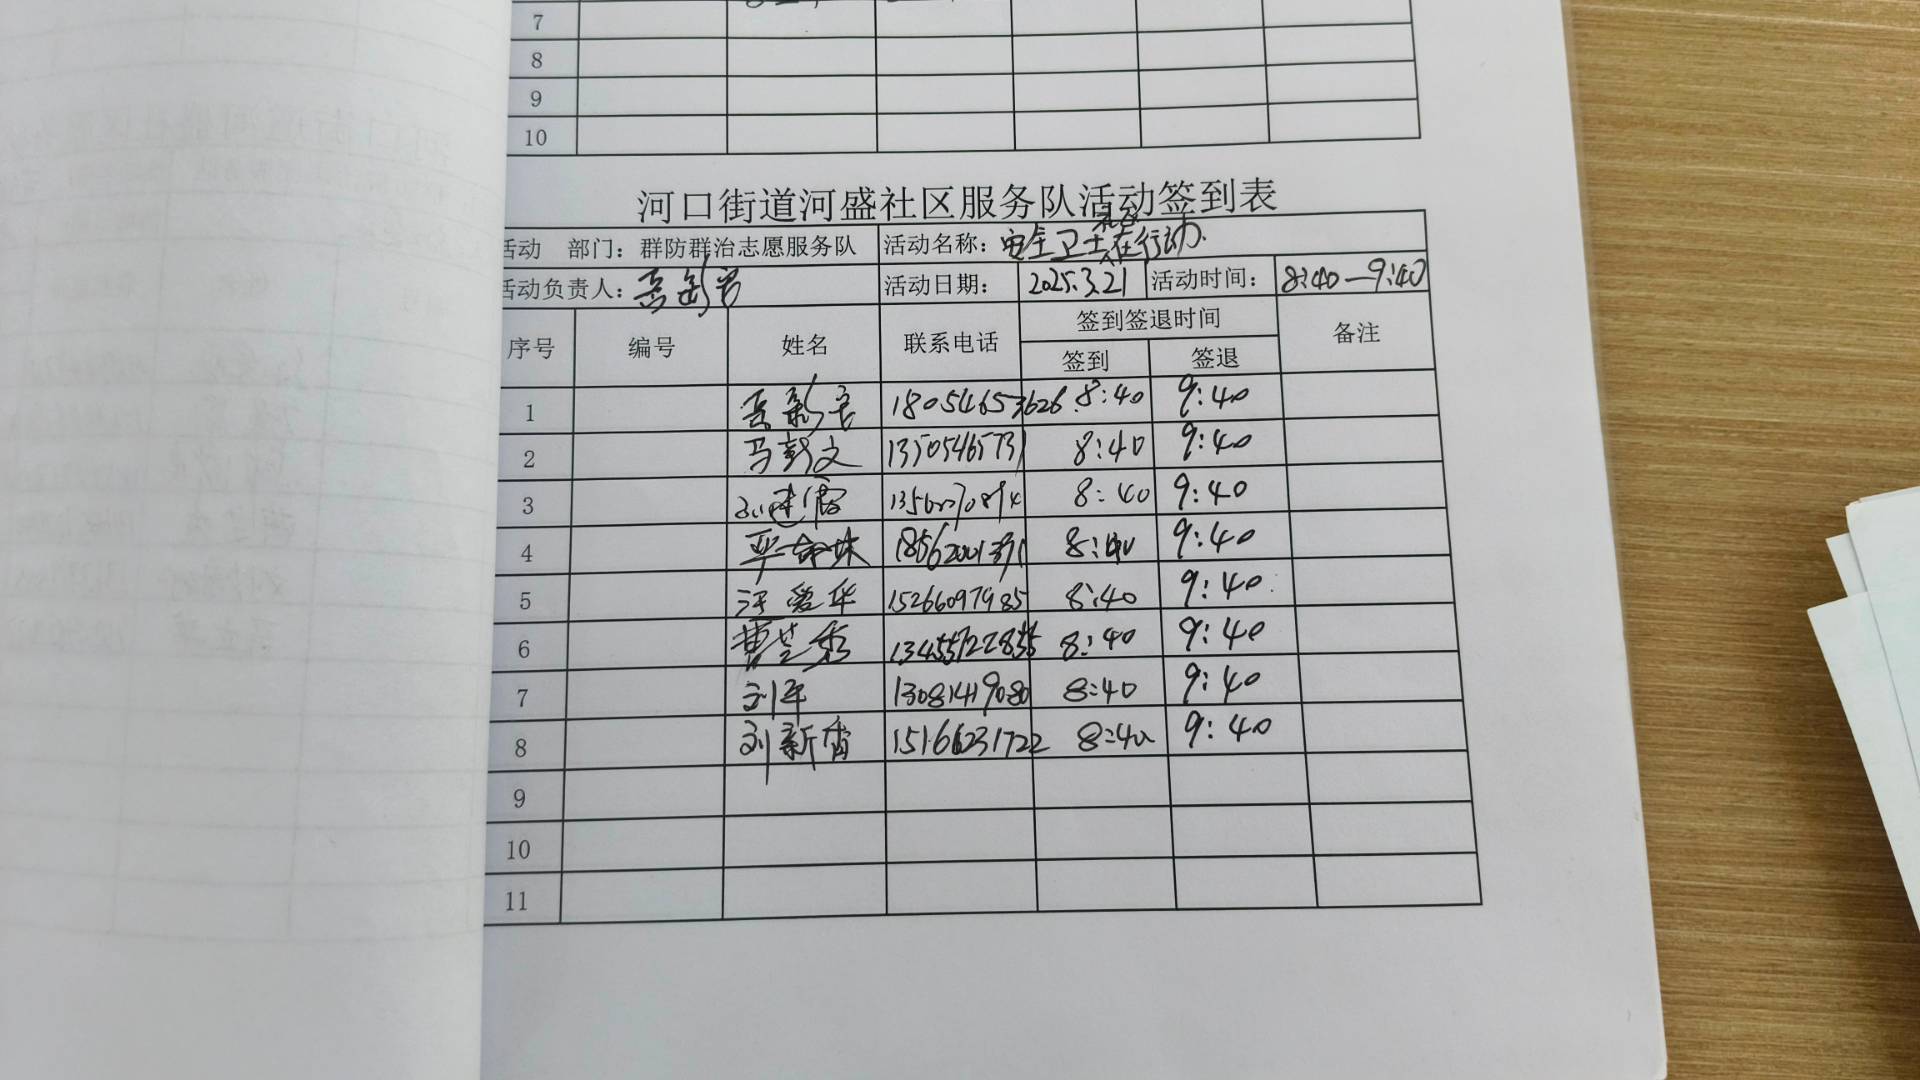 7
8
9
10
河口街道河盛社区服务队活动签到表
活动 部门：群防群治志愿服务队 活动名称：安全卫士在行动
活动负责人： 活动日期： 2025.3.21 活动时间： 8:40—9:40
序号 编号 姓名 联系电话 签到签退时间 备注
签到 签退
1 18054653626 8:40 9:40
2 马彭文 13505465731 8:40 9:40
3 8:40 9:40
4 18562001391 8:40 9:40
5 15266097985 8:40 9:40
6 8:40 9:40
7 刘军 13081419080 8:40 9:40
8 刘新香 15166231722 8:40 9:40
9
10
11